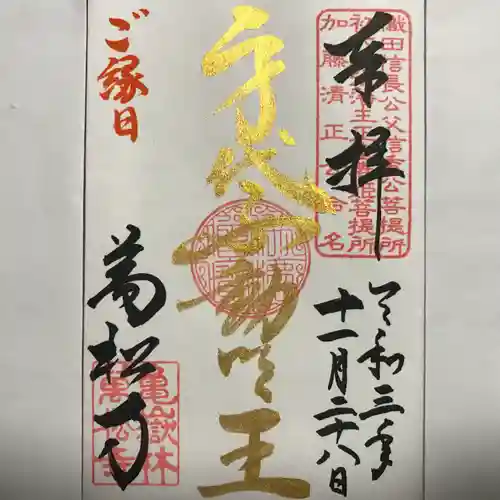 奉拝
令和三年
十一月二十八日
身代不動明王
ご縁日
萬松寺
織田信長公父信秀公菩提所
加藤清正公命名
亀嶽林
萬松寺